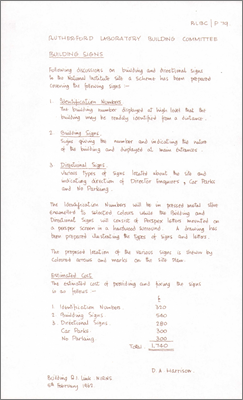 RLBC/P 79
RUTHERFORD LABORATORY BUILDING COMMITTEE
BUILDING SIGNS
Following discussions on building and directional signs
in the National Institute site a scheme has been prepared
covering the following signs :-
1. Identification Numbers
The building number displayed at high level so that the
building may be readily identified from a distance.
2. Building Signs.
Signs giving the number and indicating the name
of the building and displayed at main entrances.
3. Directional Signs
Various types of signs located about the site and
indicating direction of Director Enquiries, Car Parks
and No Parking.
The Identification Numbers will be in pressed metal stove
enamelled to selected colours while the Building and
Directional Signs will consist of Perspex letters mounted on
a perspex screen in a hardwood surround. A drawing has
been prepared illustrating the types of signs and letter.
The proposed location of the various signs is shown by
coloured arrows and marks on the site plan.
Estimated Cost
The estimated cost of providing and fixing the signs
is as follows :-
£
1 Identification Numbers 320
2 Building Signs 540
3 Directional Signs 280
Car Parks 300
No Parking 300
TOTAL 1,740
D. A. Harrison.
Building R.1
6th February 1962